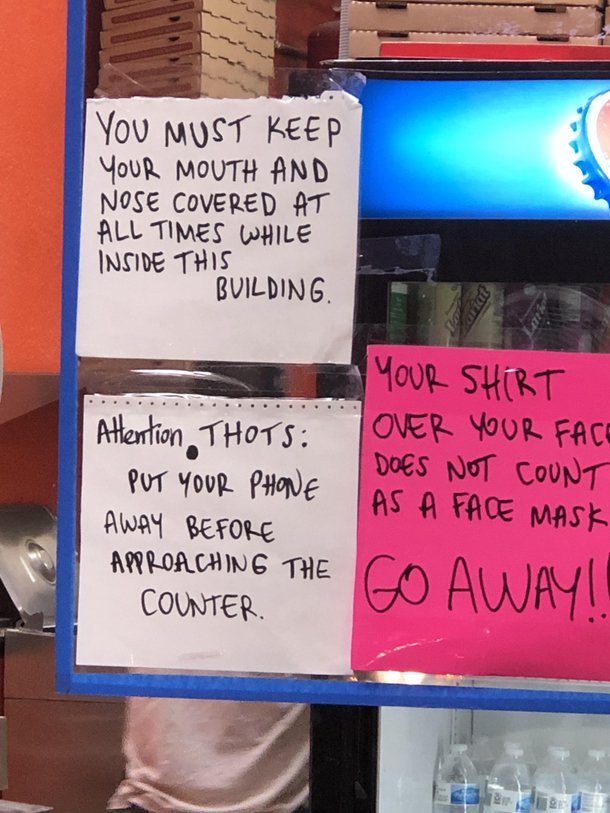 YOU MUST KEEP
YOUR MOUTH AND
NOSE COVERED AT
ALL TIMES WHILE
INSIDE THIS
BUILDING.
Attention THOTS:
PUT YOUR PHONE
AWAY BEFORE
APPROACHING THE
COUNTER.
YOUR SHIRT
OVER YOUR FACE
DOES NOT COUNT
AS A FACE MASK
GO AWAY!!